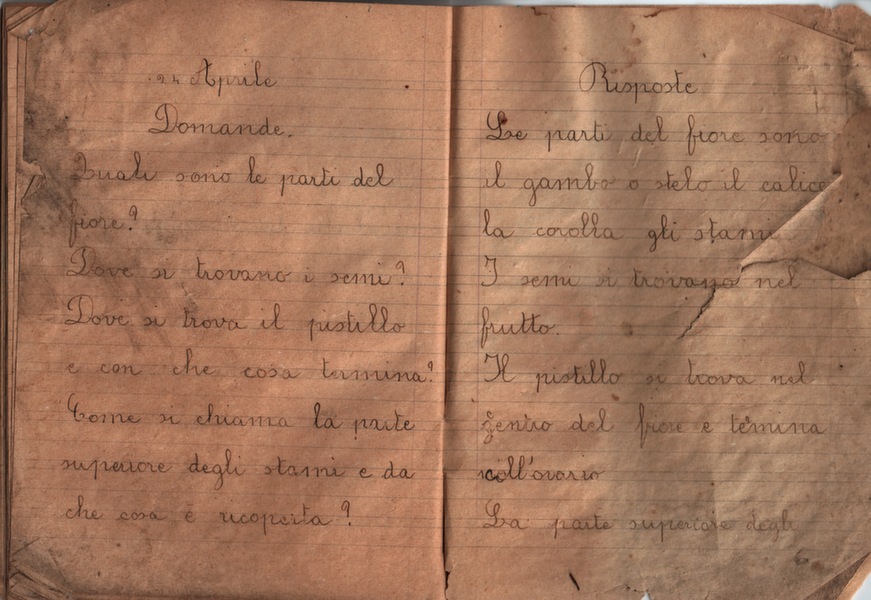 24 Aprile
Domande.
Quali sono le parti del
fiore?
Dove si trovano i semi?
Dove si trova il pistillo
e con che cosa termina?
Come si chiama la prite
superiore degli stami e da
che cosa è ricoperta?
Risposte
Le parti del fiore sono
il gambo o stelo il calice
la corolla gli stami
I semi si trovano nel
frutto.
Il pistillo si trova nel
centro del fiore e temina
coll'ovario
La parte superiore degli